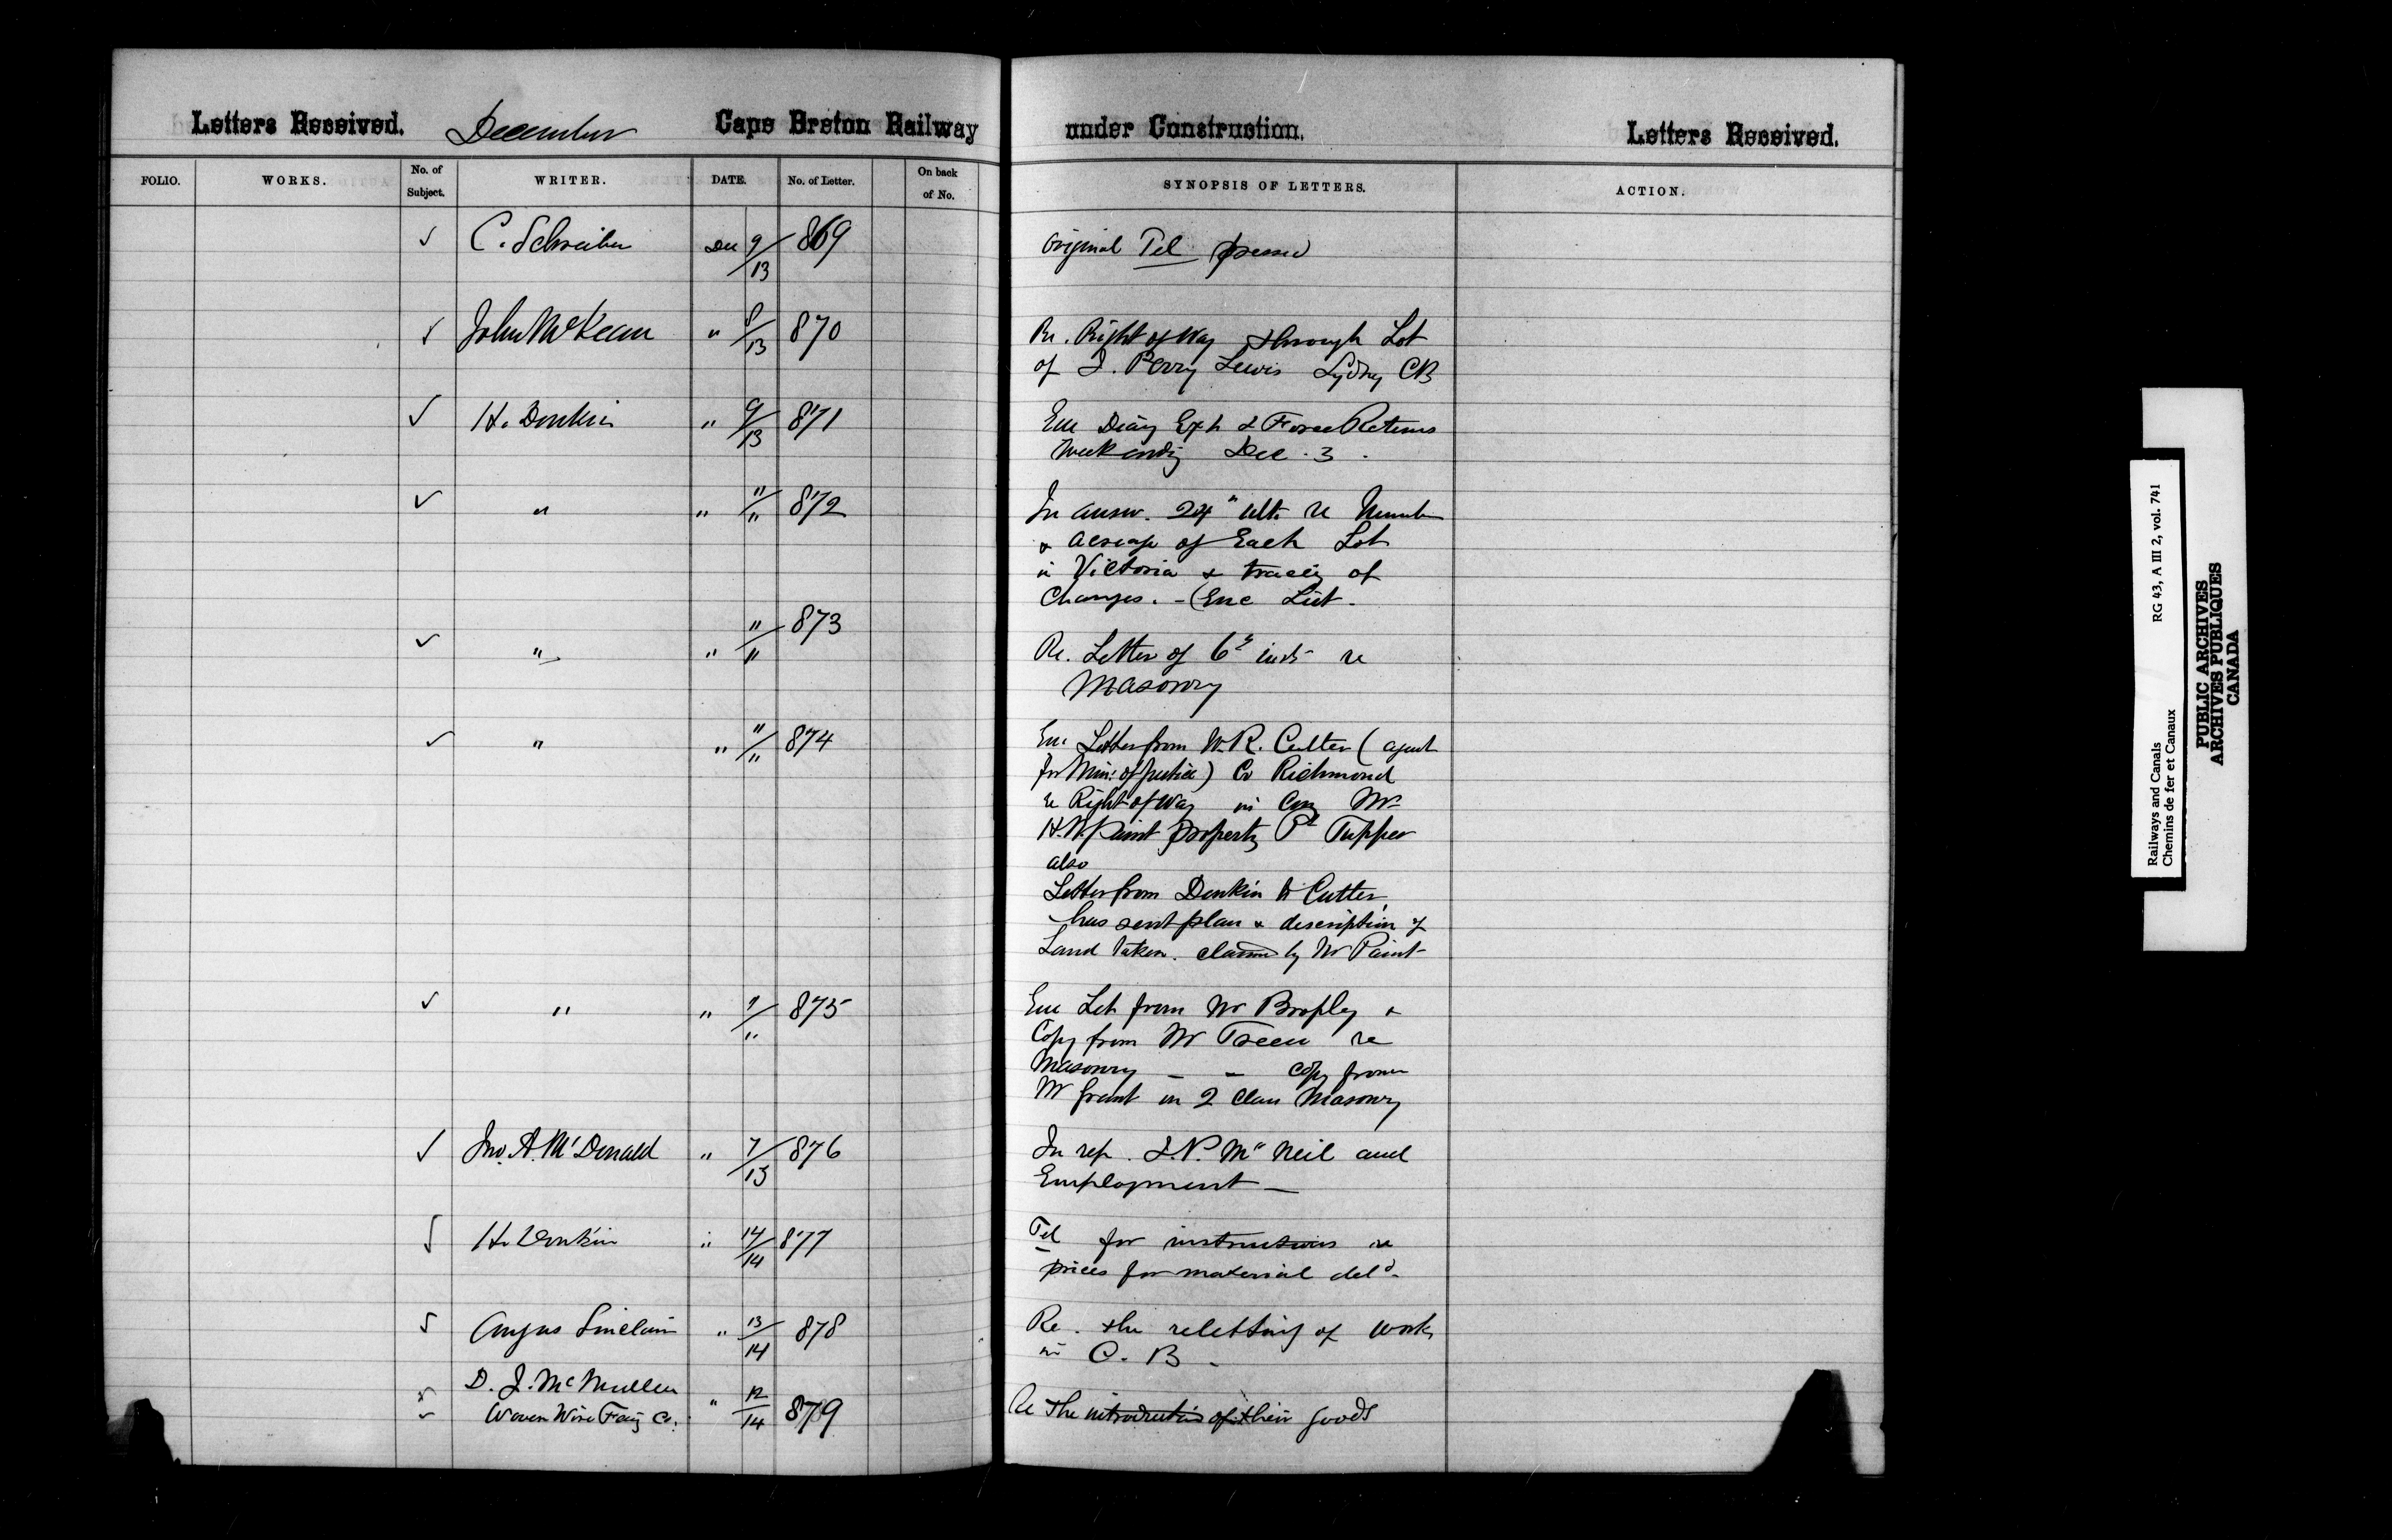 Letters Received. December Cape Breton Railway under Construction. Letters Received.
FOLIO. WORKS. No. of Subject. WRITER. DATE. No. of Letter. On back of No. SYNOPSIS OF LETTERS. ACTION.
✓ C. Schreiber Dec 9/13 869 Original Tel
✓ John McKean " 8/13 870 Re. Right of Way through Lot
of J. Perry Lewis Sydney CB
✓ H. Donkin " 9/13 871 Enc Diary Exp & Force Returns
Week ending Dec. 3.
✓ " " "/" 872 In answ. 24" ult. re Number
& acreage of Each Lot
in Victoria & tracing of
Changes. - (Enc List.
✓ " " "/" 873 Re. Letter of 6th inst re
Masonry
✓ " " "/" 874 Enc Letter from W. R. Cutler (agent
for Min: of Justice) Co Richmond
re Right of Way in Mr
H. N. Paint property Pt Tupper
also
Letter from Donkin to Cutler,
has sent plan & description of
Land taken. claimed by Mr Paint
✓ " " 9/" 875 Enc Let from Mr Brophy &
Copy from Mr Treen re
Masonry - - Copy from
Mr Grant on 2 Class Masonry
✓ Jno. A. McDonald " 7/13 876 In ref. J. N. Mc Neil and
Employment -
✓ H. Donkin " 14/14 877 Tel for instructions re
prices for material deld.
✓ Angus Sinclair " 13/14 878 Re. the reletting of Work
in C. B.
✓ D. J. McMullen
✓ Woven Wire Fcing Co. " 12/14 879 Re the introduction of their goods
Railways and Canals RG 43, A III 2, vol. 741
Chemins de fer et Canaux
PUBLIC ARCHIVES
ARCHIVES PUBLIQUES
CANADA